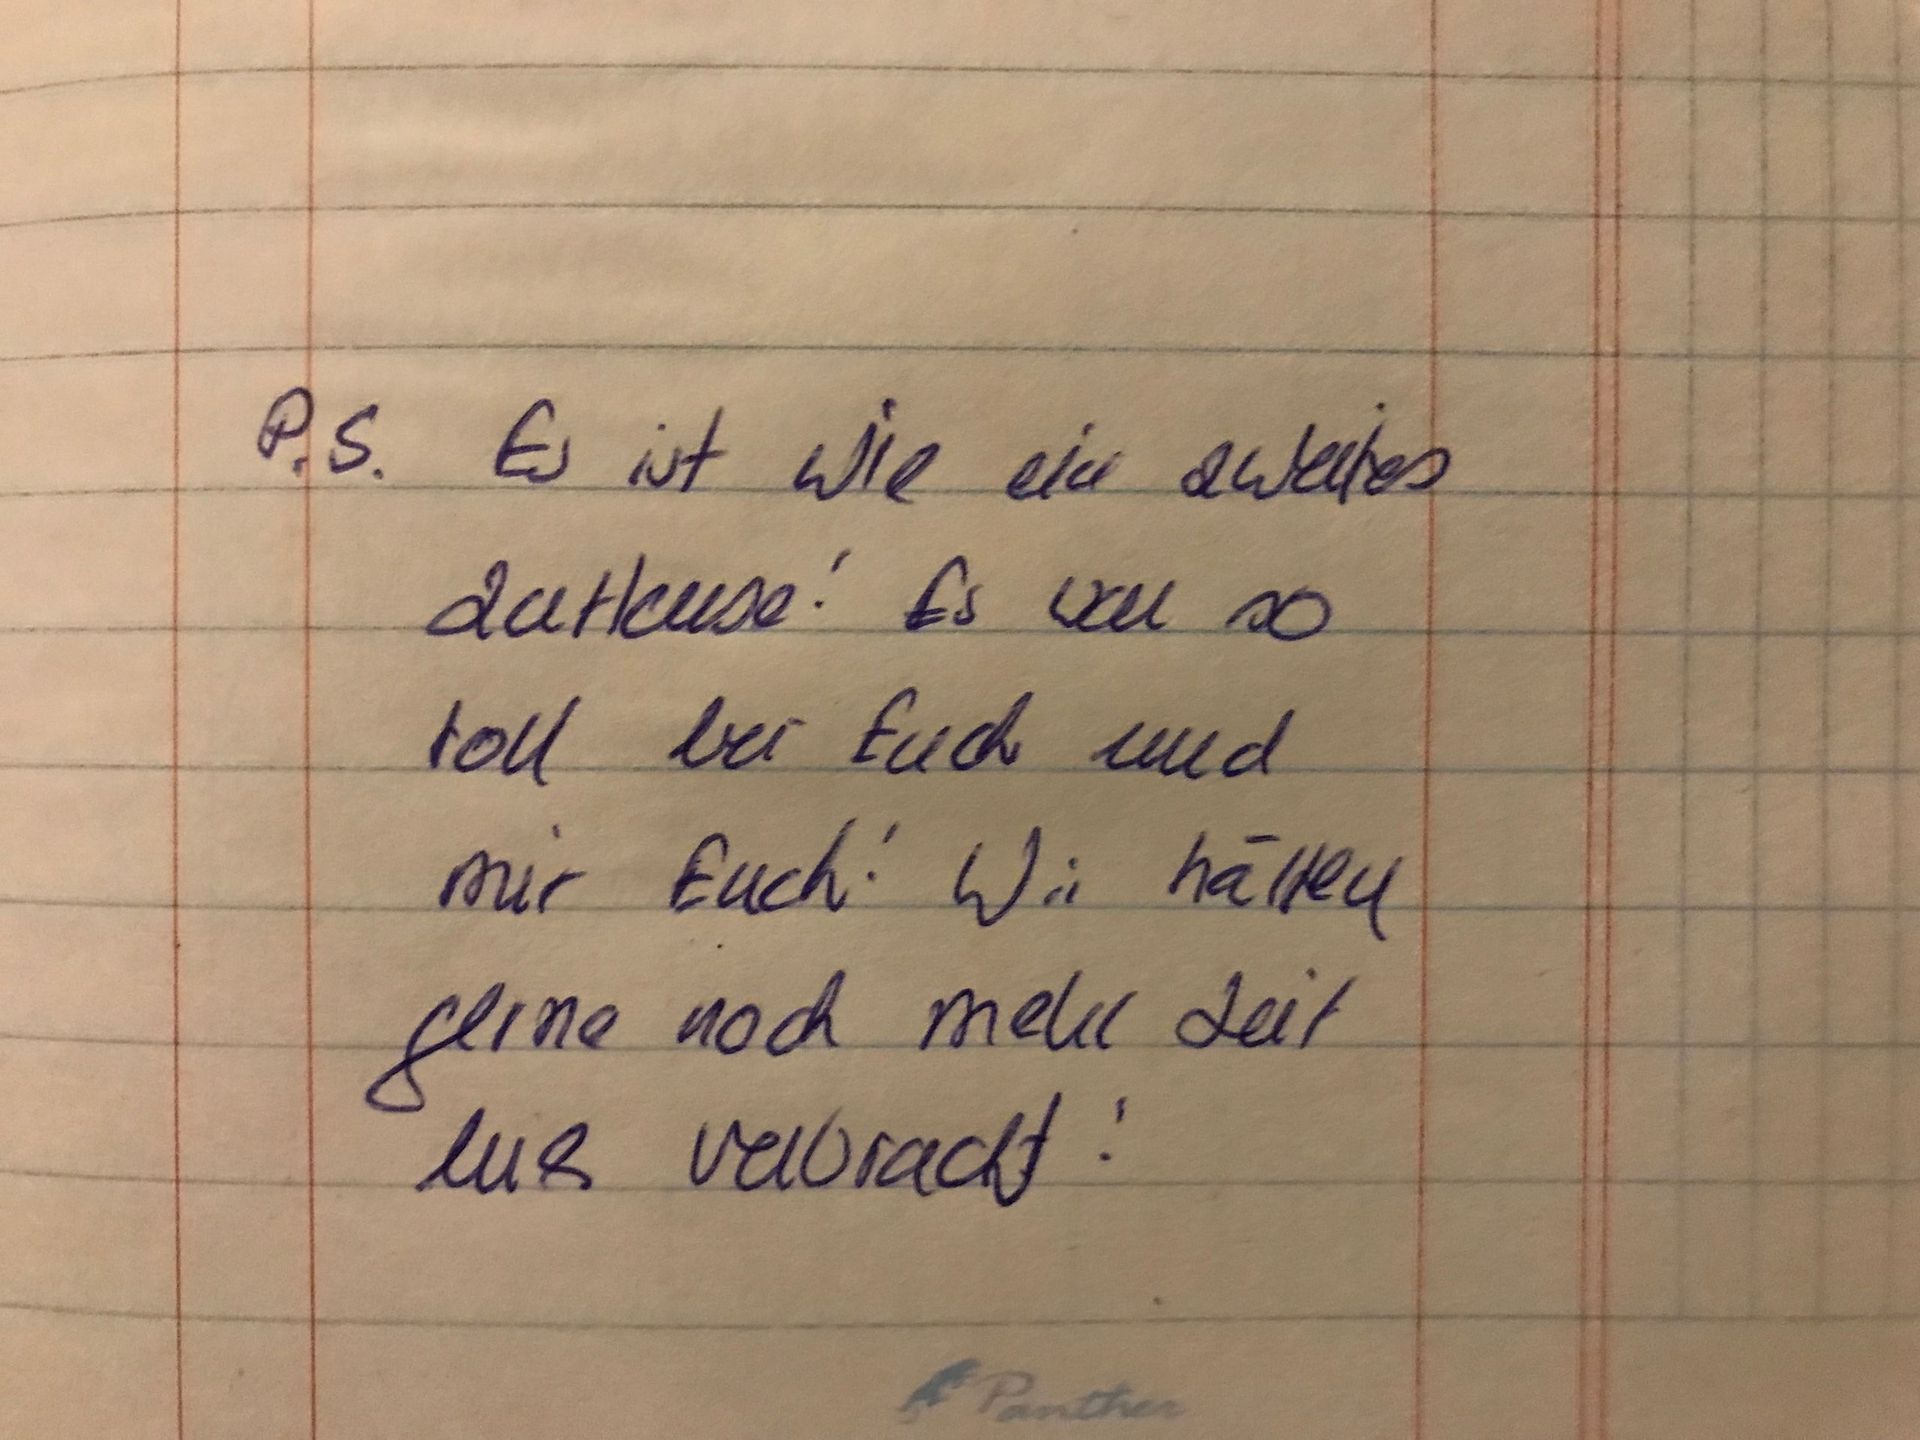 P.S. Es ist wie ein zweites
zuHause! Es war so
toll bei Euch und
mit Euch! Wir hätten
gerne noch mehr Zeit
hier verbracht!
Panther